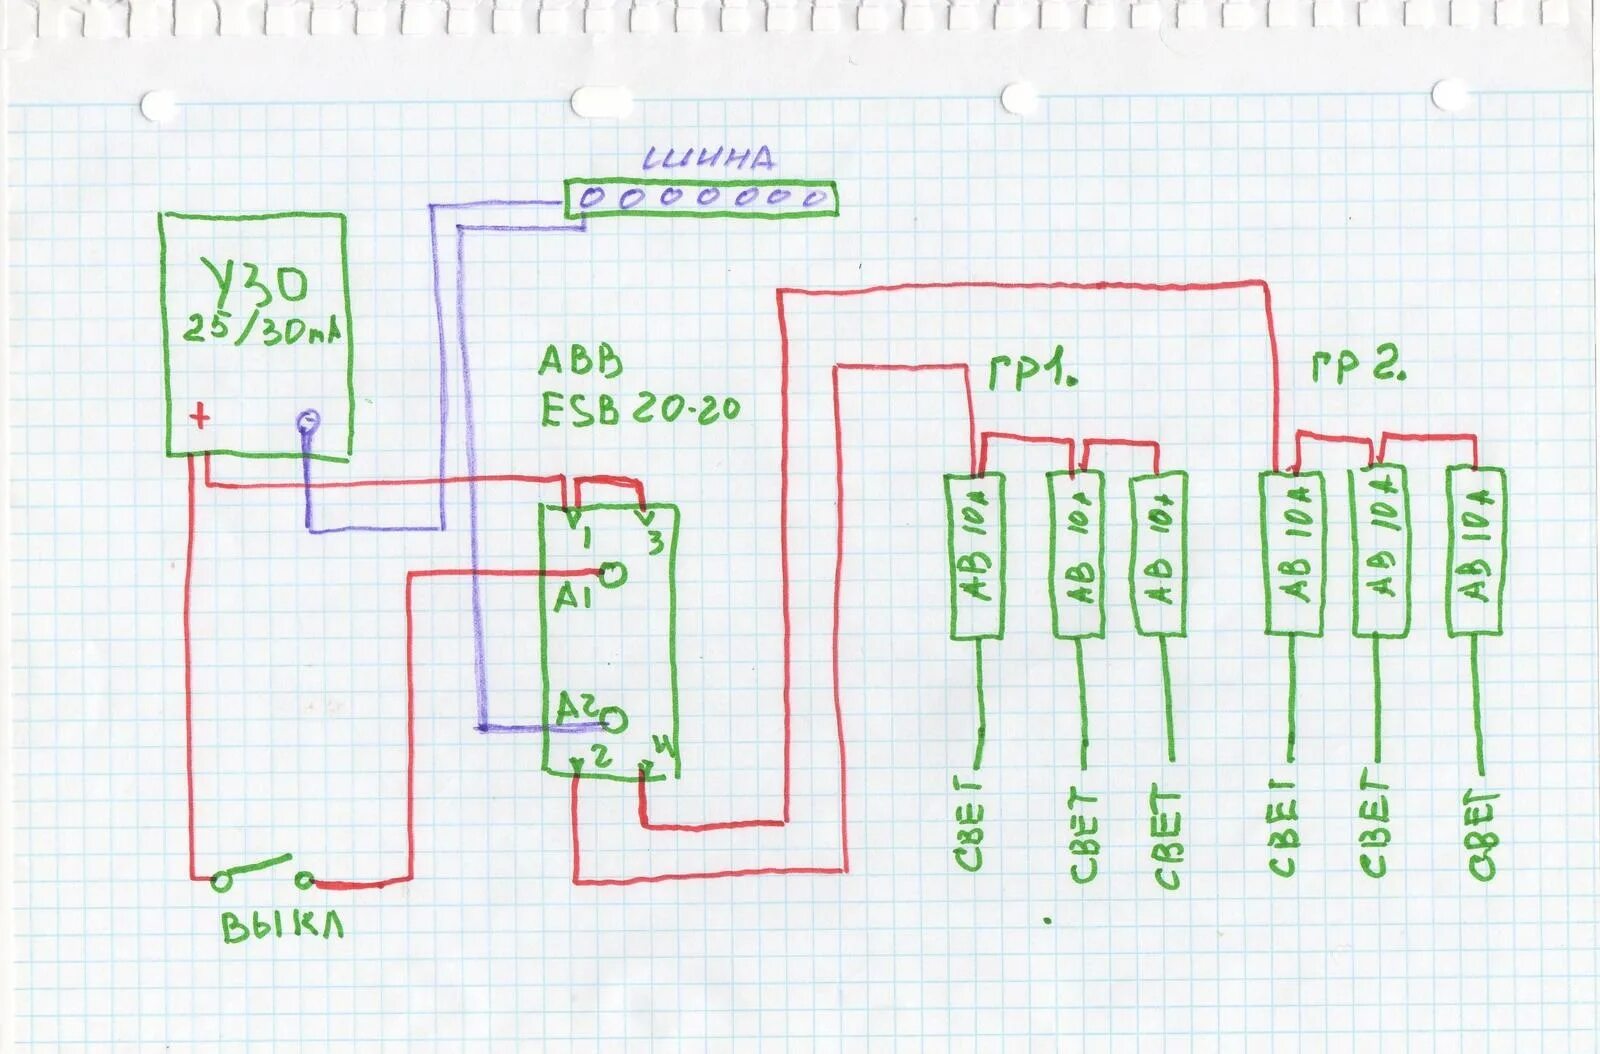 ШИНА
УЗО
25/30mA
+
-
ABB
ESB 20-20
гр1.
гр 2.
1
3
A1
A2
2
4
АВ 10А
АВ 10А
АВ 10А
АВ 10А
АВ 10А
АВ 10А
СВЕТ
СВЕТ
СВЕТ
СВЕТ
СВЕТ
СВЕТ
ВЫКЛ